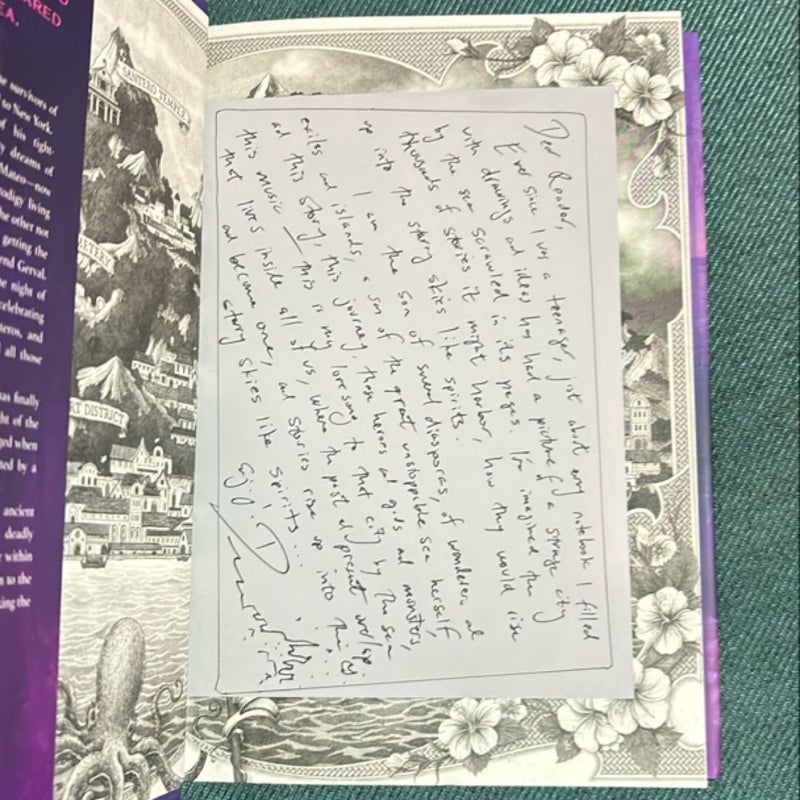 ARED
EA.
e survivors of
to New York.
of his fight-
y dreams of
Mateo—now
rodigy living
he other not
getting the
nd Gerval,
e night of
celebrating
eros, and
all those
has finally
ht of the
ged when
ned by a
ancient
deadly
within
n to the
king the
SANTERO TEMPLE
METERY
RT DISTRICT
Dear Reader,
Ever since I was a teenager, just about every notebook I filled
with drawings and ideas has had a picture of a strange city
by the sea scrawled in its pages. I've imagined the
thousands of stories it might harbor, how they would rise
up into the starry skies like spirits.
I am the son of several diasporas, of wanderers and
exiles and islands, a son of the great unstoppable sea herself,
and this story, this journey, these heroes and gods and monsters,
this music — this is my lovesong to that city by the sea
that lives inside all of us, where the past and present
and become one, and stories rise up into the
starry skies like spirits...